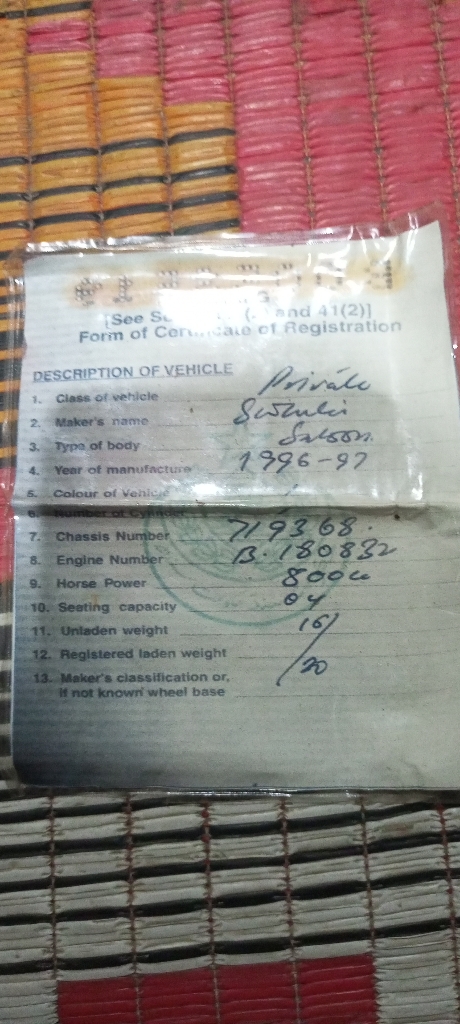 G
[See Su and 41(2)]
Form of Certificate of Registration
DESCRIPTION OF VEHICLE
1. Class of vehicle Private
2. Maker's name Suzuki
3. Type of body Saloon.
4. Year of manufacture 1996-97
5. Colour of Vehicle
6. Number of Cylinder
7. Chassis Number 719368.
8. Engine Number B.180832
9. Horse Power 800cc
10. Seating capacity 04
11. Unladen weight 16/
12. Registered laden weight
13. Maker's classification or, /20
if not known wheel base